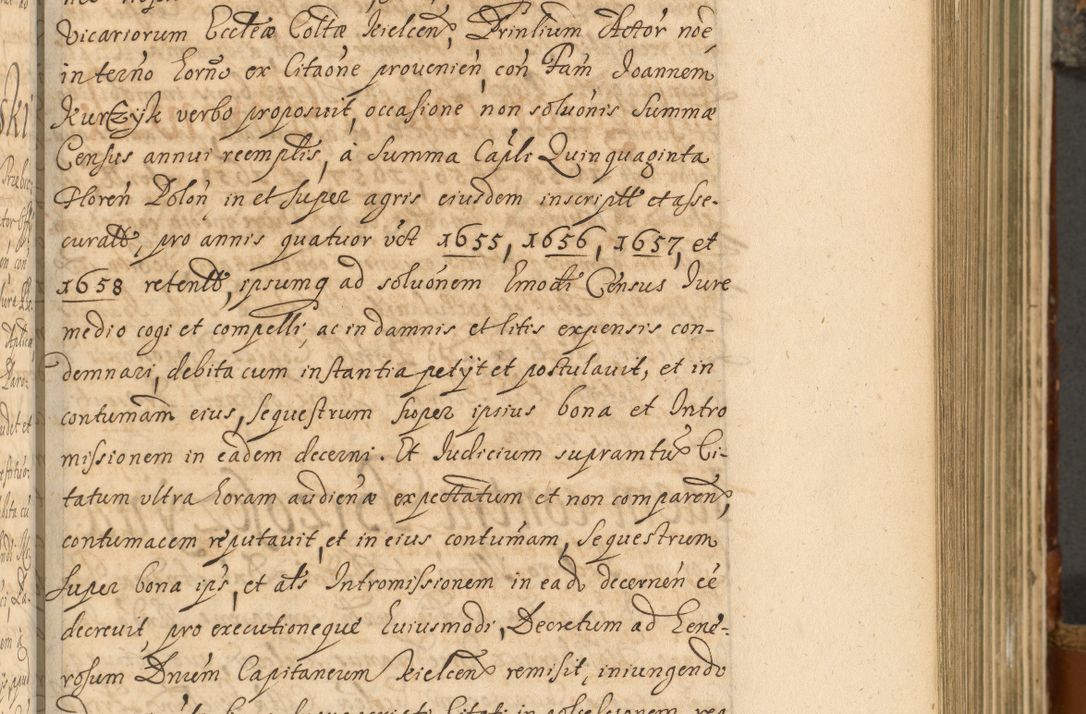 Vicariorum Eccłeæ Coltæ Kielcen, Prinlium Actor noe
in terno horno ex Citaone provenien con Fam Joannem
Kurczyk verbo proposuit, occasione non soluonis Summæ
Census annui reemptis, à Summa Capli Quinquaginta
Floren Polon, in et super agris eiusdem inscriptt et asse-
curatt, pro annis quatuor vct 1655, 1656, 1657, et
1658 retentt, ipsumq ad soluonem Emodi Census Jure
medio cogi et compelli, ac in damnis et litis expensis con-
demnari, debita cum instantia petijt et postulauit, et in
contumam eius, sequestrum super ipsius bona et Intro
missionem in eadem decerni. Et Iudicium supramtu Ci-
tatum vltra horam audienæ expectatum et non comparen,
contumacem reputauit, et in eius contumam, sequestrum
super bona ips, et ats Intromissionem in ead decernen ee
decreuit, pro executioneque huiusmodi, Decretum ad Gene-
rosum Dnum Capitaneum Kielcen remisit, iniungendo